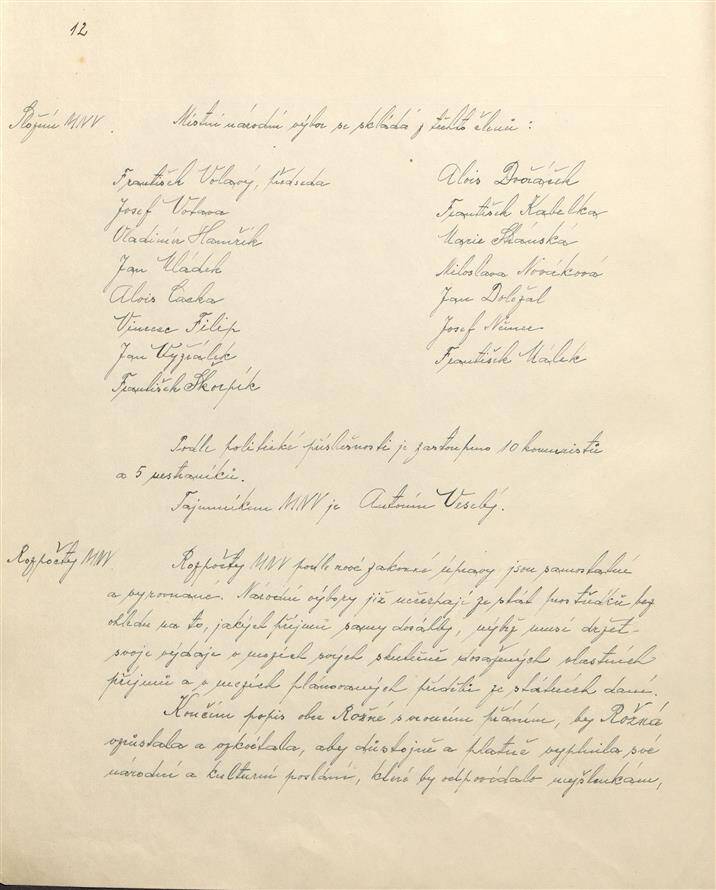 12
Složení MNV
Místní národní výbor se skládá z těchto členů:
František Volavý, předseda
Josef Votava
Vladimír Hamřík
Jan Mládek
Alois Cacka
Vincenc Filip
Jan Vyžrálek
František Škorpík
Alois Dvořáček
František Kabelka
Marie Skánská
Miloslava Nováková
Jan Doležal
Josef Němec
František Málek
Podle politické příslušnosti je zastoupeno 10 komunistů
a 5 nestraníků.
Tajemníkem MNV je Antonín Veselý.
Rozpočty MNV
Rozpočty MNV podle nové zákonné úpravy jsou samostatné
a vyrovnané. Národní výbory již nečerpají ze stát. prostředků bez
ohledu na to, jakých příjmů samy dosáhly, nýbrž musí držet
svoje výdaje v mezích svých skutečně dosažených vlastních
příjmů a v mezích plánovaných přídělů ze státních daní.
Končím popis obce Rožné s vroucím přáním, by Rožná
vzrůstala a vzkvétala, aby důstojně a platně vyplnila své
národní a kulturní poslání, které by odpovídalo myšlenkám,